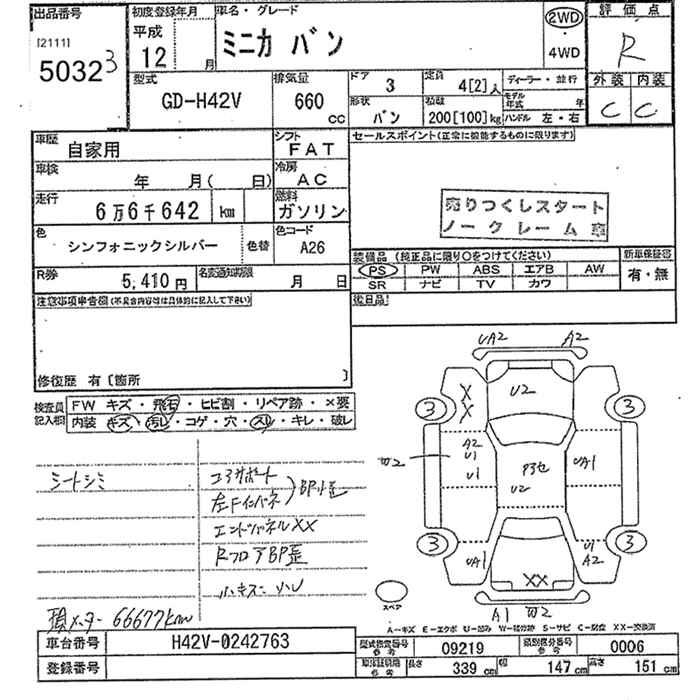 出品番号
[2111]
50323
初度登録年月
平成
12 月
車名・グレード
ミニカ バン
2WD
・
4WD
評価点
R
外装 内装
C C
型式
GD-H42V
排気量
660 cc
ドア 3
形状 バン
定員 4[2]人
積載 200[100]kg
ディーラー・並行
モデル年式 年
ハンドル 左・右
車歴 自家用
シフト FAT
車検 年 月( 日)
冷房 AC
走行 6万6千642 km
燃料 ガソリン
色 シンフォニックシルバー
色替
色コード A26
R券 5,410円
名変通知期限 月 日
セールスポイント(正常に機能するものに限ります)
売りつくしスタート
ノークレーム車
装備品 (純正品に限り○をつけてください)
新車保証書
PS PW ABS エアB AW
有・無
SR ナビ TV カワ
後日品
注意事項申告欄(不具合内容等は具体的に記入して下さい)
修復歴 有〔箇所 〕
検査員記入欄
FW キズ・飛石・ヒビ割・リペア跡・×要
内装 キズ・汚レ・コゲ・穴・スレ・キレ・破レ
シートシミ
コアサポート
左Fインパネ
BP小歪
エンドパネルXX
RフロアBP歪
小キズ・凹
積メーター66677km
UA2 A2
X
X
U2
3 3
A2
U1
U1
W2
P3セ
U2
UA1
3 3
UA1
U1
A2
XX
A1 W2
スペア
A-キズ E-エクボ U-凹み W-補修跡 S-サビ C-腐食 XX-交換済
車台番号 H42V-0242763
登録番号
型式指定番号 参考 09219
類別区分番号 参考 0006
車体証明書 参考 長さ 339 cm 幅 147 cm 高さ 151 cm